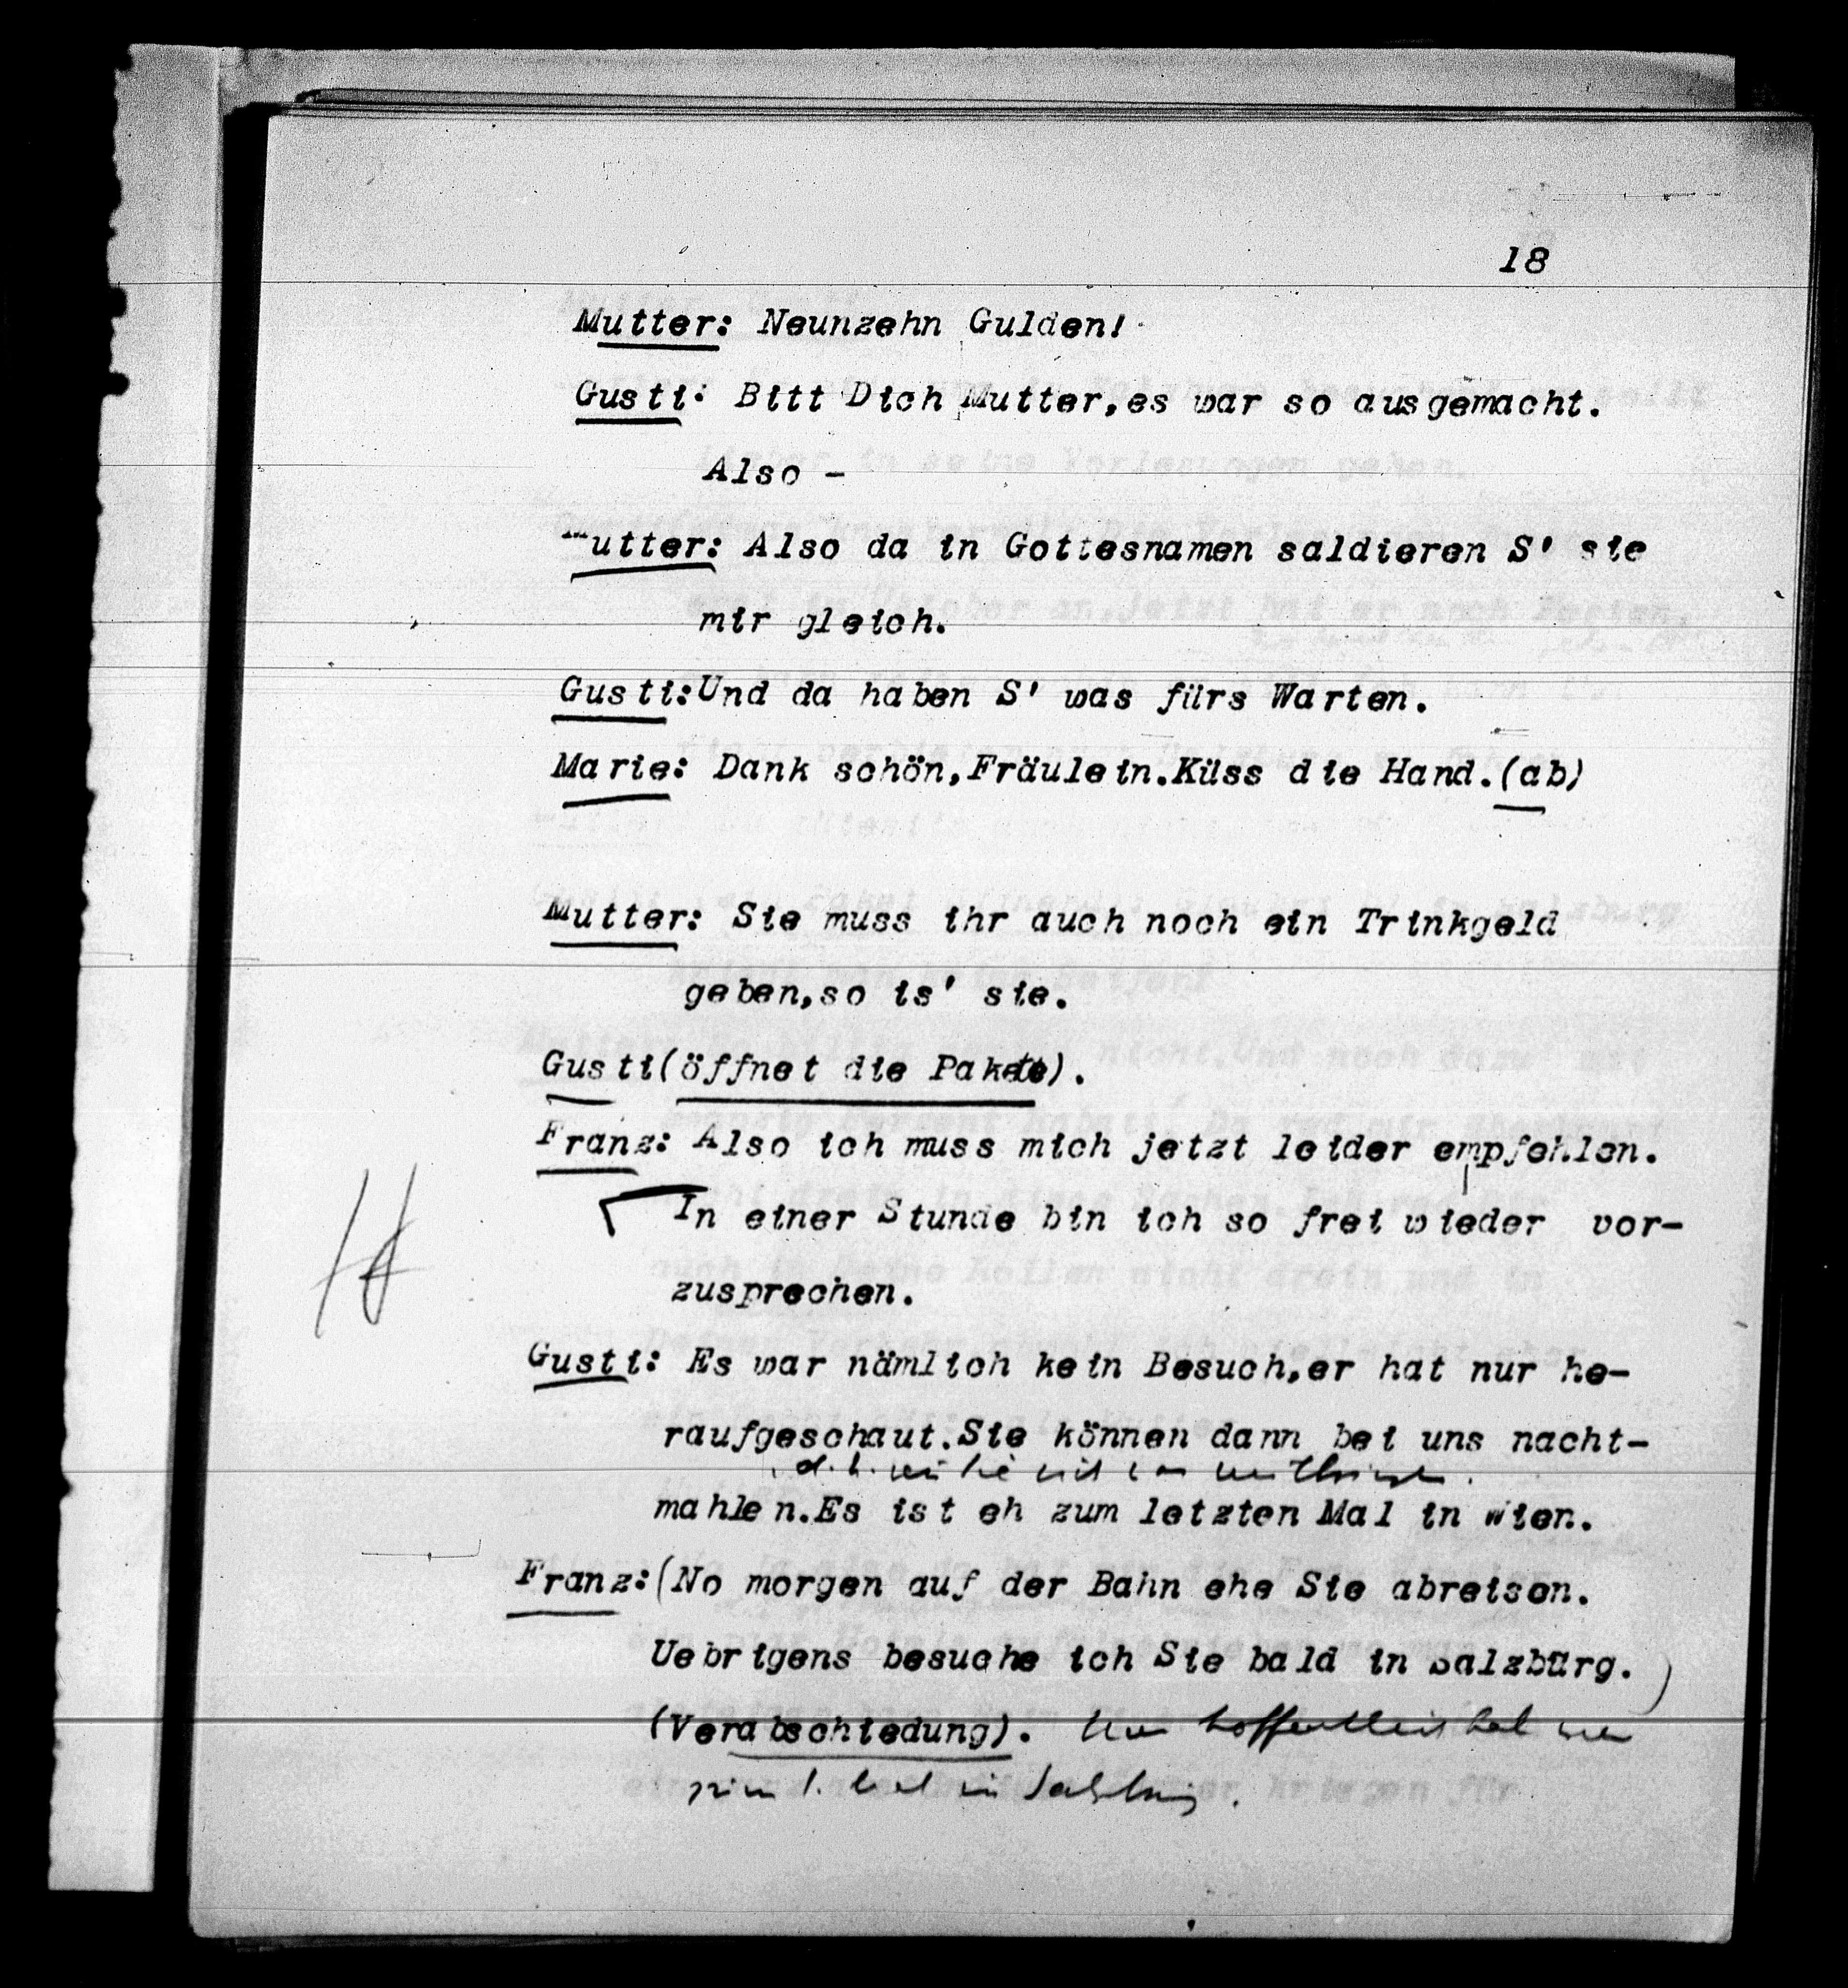 18
Mutter: Neunzehn Gulden!
Gusti: Bitt Dich Mutter,es war so ausgemacht.
Also -
Mutter: Also da in Gottesnamen saldieren S' sie
mir gleich.
Gusti:Und da haben S' was fürs Warten.
Marie: Dank schön,Fräulein.Küss die Hand.(ab)
Mutter: Sie muss ihr auch noch ein Trinkgeld
geben,so is' sie.
Gusti(öffnet die Pakete).
Franz: Also ich muss mich jetzt leider empfehlen.
In einer Stunde bin ich so frei wieder vor-
zusprechen.
Gusti: Es war nämlich kein Besuch,er hat nur he-
raufgeschaut.Sie können dann bei uns nacht-
mahlen.Es ist eh zum letzten Mal in Wien.
Franz:(No morgen auf der Bahn ehe Sie abreisen.
Uebrigens besuche ich Sie bald in Salzburg.)
(Verabschiedung). hoffentlich
zum 1. Mal in Salzburg.